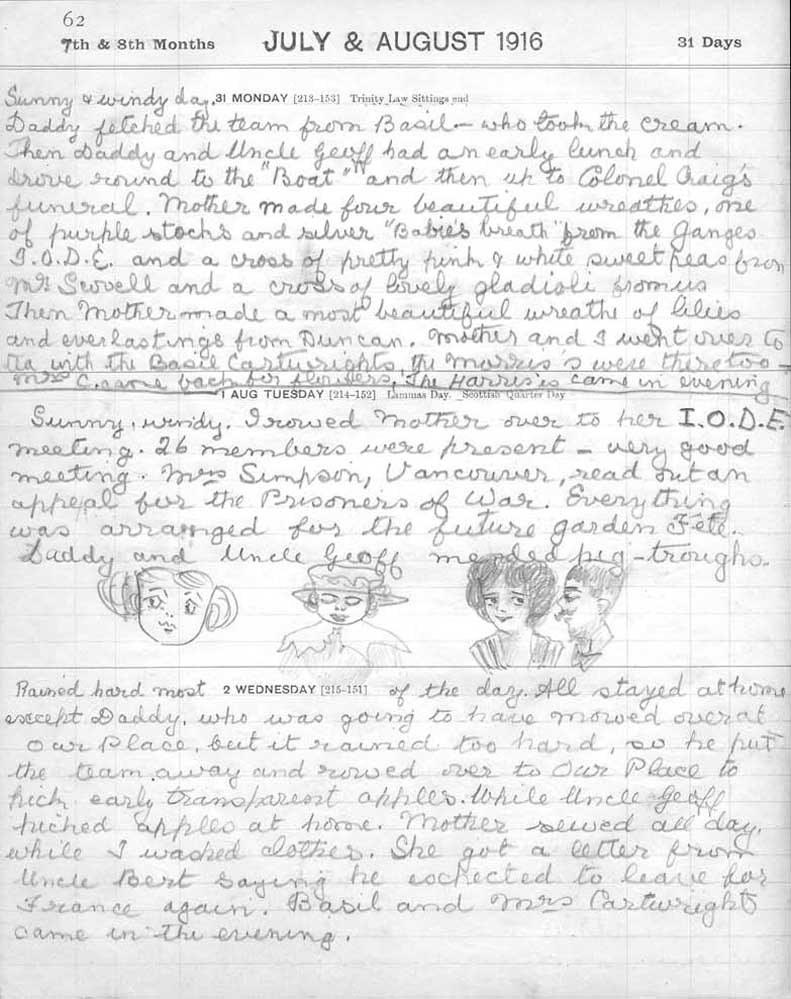 62
7th & 8th Months JULY & AUGUST 1916 31 Days
Sunny & windy day. 31 MONDAY [213-153] Trinity Law Sittings end
Daddy fetched the team from Basil - who took the cream.
Then Daddy and Uncle Geoff had an early lunch and
drove round to the "Boat" and then up to Colonel Craig's
funeral. Mother made four beautiful wreathes, one
of purple stocks and silver "Babie's breath" from the Ganges
I.O.D.E. and a cross of pretty pink & white sweet peas from
Mrs Scovell and a cross of lovely gladioli from us
Then Mother made a most beautiful wreathe of lilies
and everlastings from Duncan. Mother and I went over to
tea with the Basil Cartwrights, the Morris's were there too -
Mrs C. came back for flowers. The Harris's came in evening
1 AUG TUESDAY [214-152] Lammas Day. Scottish Quarter Day
Sunny, windy. I rowed Mother over to her I.O.D.E
meeting. 26 members were present - very good
meeting. Mrs Simpson, Vancouver, read out an
appeal for the Prisoners of War. Everything
was arranged for the future garden Fête.
Daddy and Uncle Geoff mended pig-troughs.
Rained hard most 2 WEDNESDAY [215-151] of the day. All stayed at home
except Daddy, who was going to have mowed over at
Our Place, but it rained too hard, so he put
the team away and rowed over to Our Place to
pick early transparent apples. While Uncle Geoff
picked apples at home. Mother sewed all day,
while I washed clothes. She got a letter from
Uncle Bert saying he expected to leave for
France again. Basil and Mrs Cartwright
came in the evening.